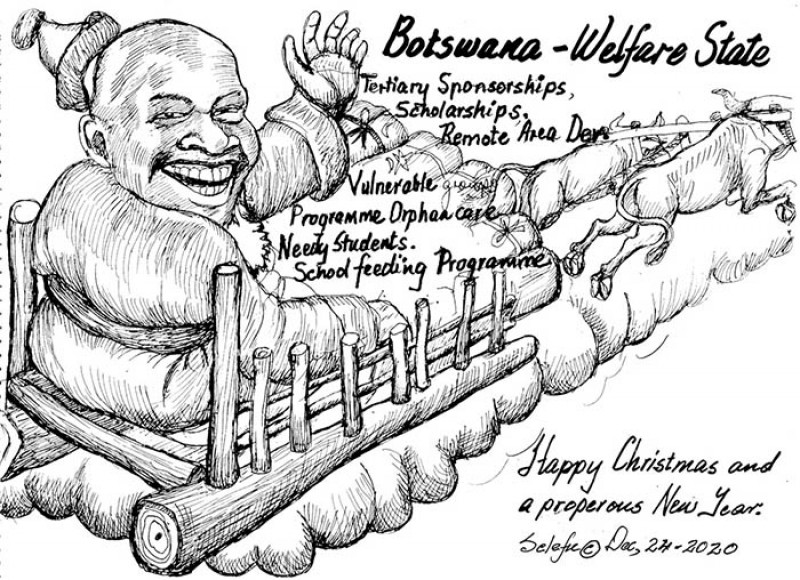 Botswana - Welfare State
Tertiary Sponsorships,
Scholarships.
Remote Area Dev.
Vulnerable groups
Programme Orphan care
Needy Students.
School feeding Programme
Happy Christmas and
a properous New Year.
Selefu © Dec, 24-2020